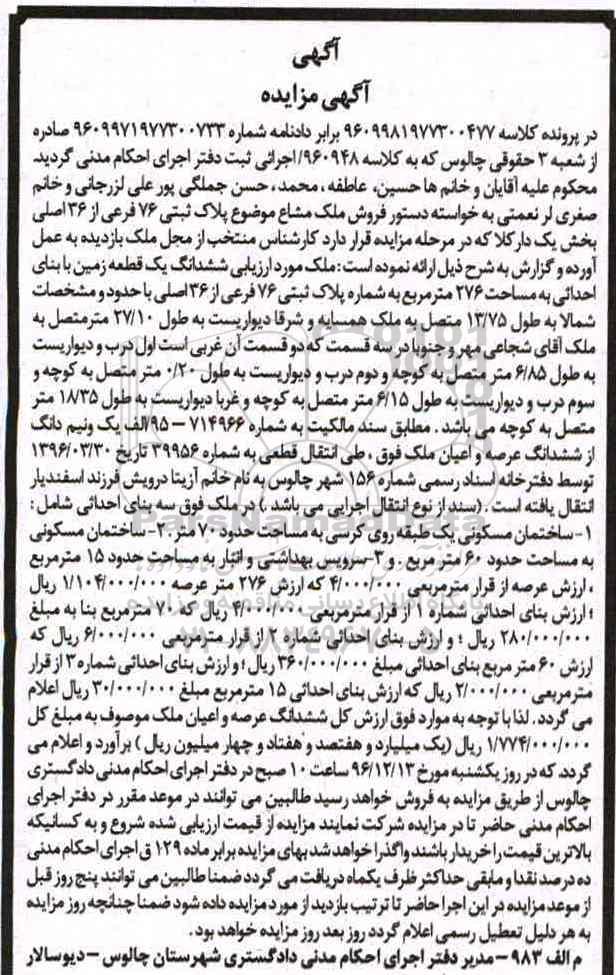 آگهی
آگهی مزایده
در پرونده کلاسه ۹۶۰۹۹۸۱۹۷۷۳۰۰۴۷۷ برابر دادنامه شماره ۹۶۰۹۹۷۱۹۷۷۳۰۰۷۳۳ صادره
از شعبه ۳ حقوقی چالوس که به کلاسه ۹۶۰۹۴۸/اجرائی ثبت دفتر اجرای احکام مدنی گردید.
محکوم علیه آقایان و خانم ها حسین، عاطفه ، محمد ، حسن جملگی پور علی لزرجانی و خانم
صغری لر نعمتی به خواسته دستور فروش ملک مشاع موضوع پلاک ثبتی ۷۶ فرعی از ۳۶ اصلی
بخش یک دارکلا که در مرحله مزایده قرار دارد کارشناس منتخب از محل ملک بازدیده به عمل
آورده و گزارش به شرح ذیل ارائه نموده است : ملک مورد ارزیابی ششدانگ یک قطعه زمین با بنای
احداثی به مساحت ۲۷۶ مترمربع به شماره پلاک ثبتی ۷۶ فرعی از ۳۶ اصلی با حدود و مشخصات
شمالا به طول ۱۳/۷۵ متصل به ملک همسایه و شرقا دیواریست به طول ۲۷/۱۰ مترمتصل به
ملک آقای شجاعی مهر و جنوبا در سه قسمت که دو قسمت آن غربی است اول درب و دیواریست
به طول ۶/۸۵ متر متصل به کوچه و دوم درب و دیواریست به طول ۰/۲۰ متر متصل به کوچه و
سوم درب و دیواریست به طول ۶/۱۵ متر متصل به کوچه و غربا دیواریست به طول ۱۸/۳۵ متر
متصل به کوچه می باشد . مطابق سند مالکیت به شماره ۷۱۴۹۶۶ – ۹۵/الف یک ونیم دانگ
از ششدانگ عرصه و اعیان ملک فوق ، طی انتقال قطعی به شماره ۳۹۹۵۶ تاریخ ۱۳۹۶/۰۳/۳۰
توسط دفترخانه اسناد رسمی شماره ۱۵۶ شهر چالوس به نام خانم آزیتا درویش فرزند اسفندیار
انتقال یافته است . (سند از نوع انتقال اجرایی می باشد .) در ملک فوق سه بنای احداثی شامل :
۱- ساختمان مسکونی یک طبقه روی کرسی به مساحت حدود ۷۰ متر . ۲- ساختمان مسکونی
به مساحت حدود ۶۰ متر مربع . و ۳- سرویس بهداشتی و انبار به مساحت حدود ۱۵ مترمربع
، ارزش عرصه از قرار مترمربعی ۴/۰۰۰/۰۰۰ که ارزش ۲۷۶ متر عرصه ۱/۱۰۴/۰۰۰/۰۰۰ ریال
؛ ارزش بنای احداثی شماره ۱ از قرار مترمربعی ۴/۰۰۰/۰۰۰ ریال که ۷۰ مترمربع بنا به مبلغ
۲۸۰/۰۰۰/۰۰۰ ریال ؛ و ارزش بنای احداثی شماره ۲ از قرار مترمربعی ۶/۰۰۰/۰۰۰ ریال که
ارزش ۶۰ متر مربع بنای احداثی مبلغ ۳۶۰/۰۰۰/۰۰۰ ریال ؛ و ارزش بنای احداثی شماره ۳ از قرار
مترمربعی ۲/۰۰۰/۰۰۰ ریال که ارزش بنای احداثی ۱۵ مترمربع مبلغ ۳۰/۰۰۰/۰۰۰ ریال اعلام
می گردد . لذا با توجه به موارد فوق ارزش کل ششدانگ عرصه و اعیان ملک موصوف به مبلغ کل
۱/۷۷۴/۰۰۰/۰۰۰ ریال (یک میلیارد و هفتصد و هفتاد و چهار میلیون ریال ) برآورد و اعلام می
گردد. که در روز یکشنبه مورخ ۹۶/۱۲/۱۳ ساعت ۱۰ صبح در دفتر اجرای احکام مدنی دادگستری
چالوس از طریق مزایده به فروش خواهد رسید طالبین می توانند در موعد مقرر در دفتر اجرای
احکام مدنی حاضر تا در مزایده شرکت نمایند مزایده از قیمت ارزیابی شده شروع و به کسانیکه
بالاترین قیمت را خریدار باشند واگذرا خواهد شد بهای مزایده برابر ماده ۱۲۹ ق اجرای احکام مدنی
ده درصد نقدا و مابقی حداکثر ظرف یکماه دریافت می گردد ضمنا طالبین می توانند پنج روز قبل
از موعد مزایده در این اجرا حاضر تا ترتیب بازدید از مورد مزایده داده شود ضمنا چنانچه روز مزایده
به هر دلیل تعطیل رسمی اعلام گردد روز بعد روز مزایده خواهد بود .
م الف ۹۸۳ – مدیر دفتر اجرای احکام مدنی دادگستری شهرستان چالوس – دیوسالار
ParsNamadData